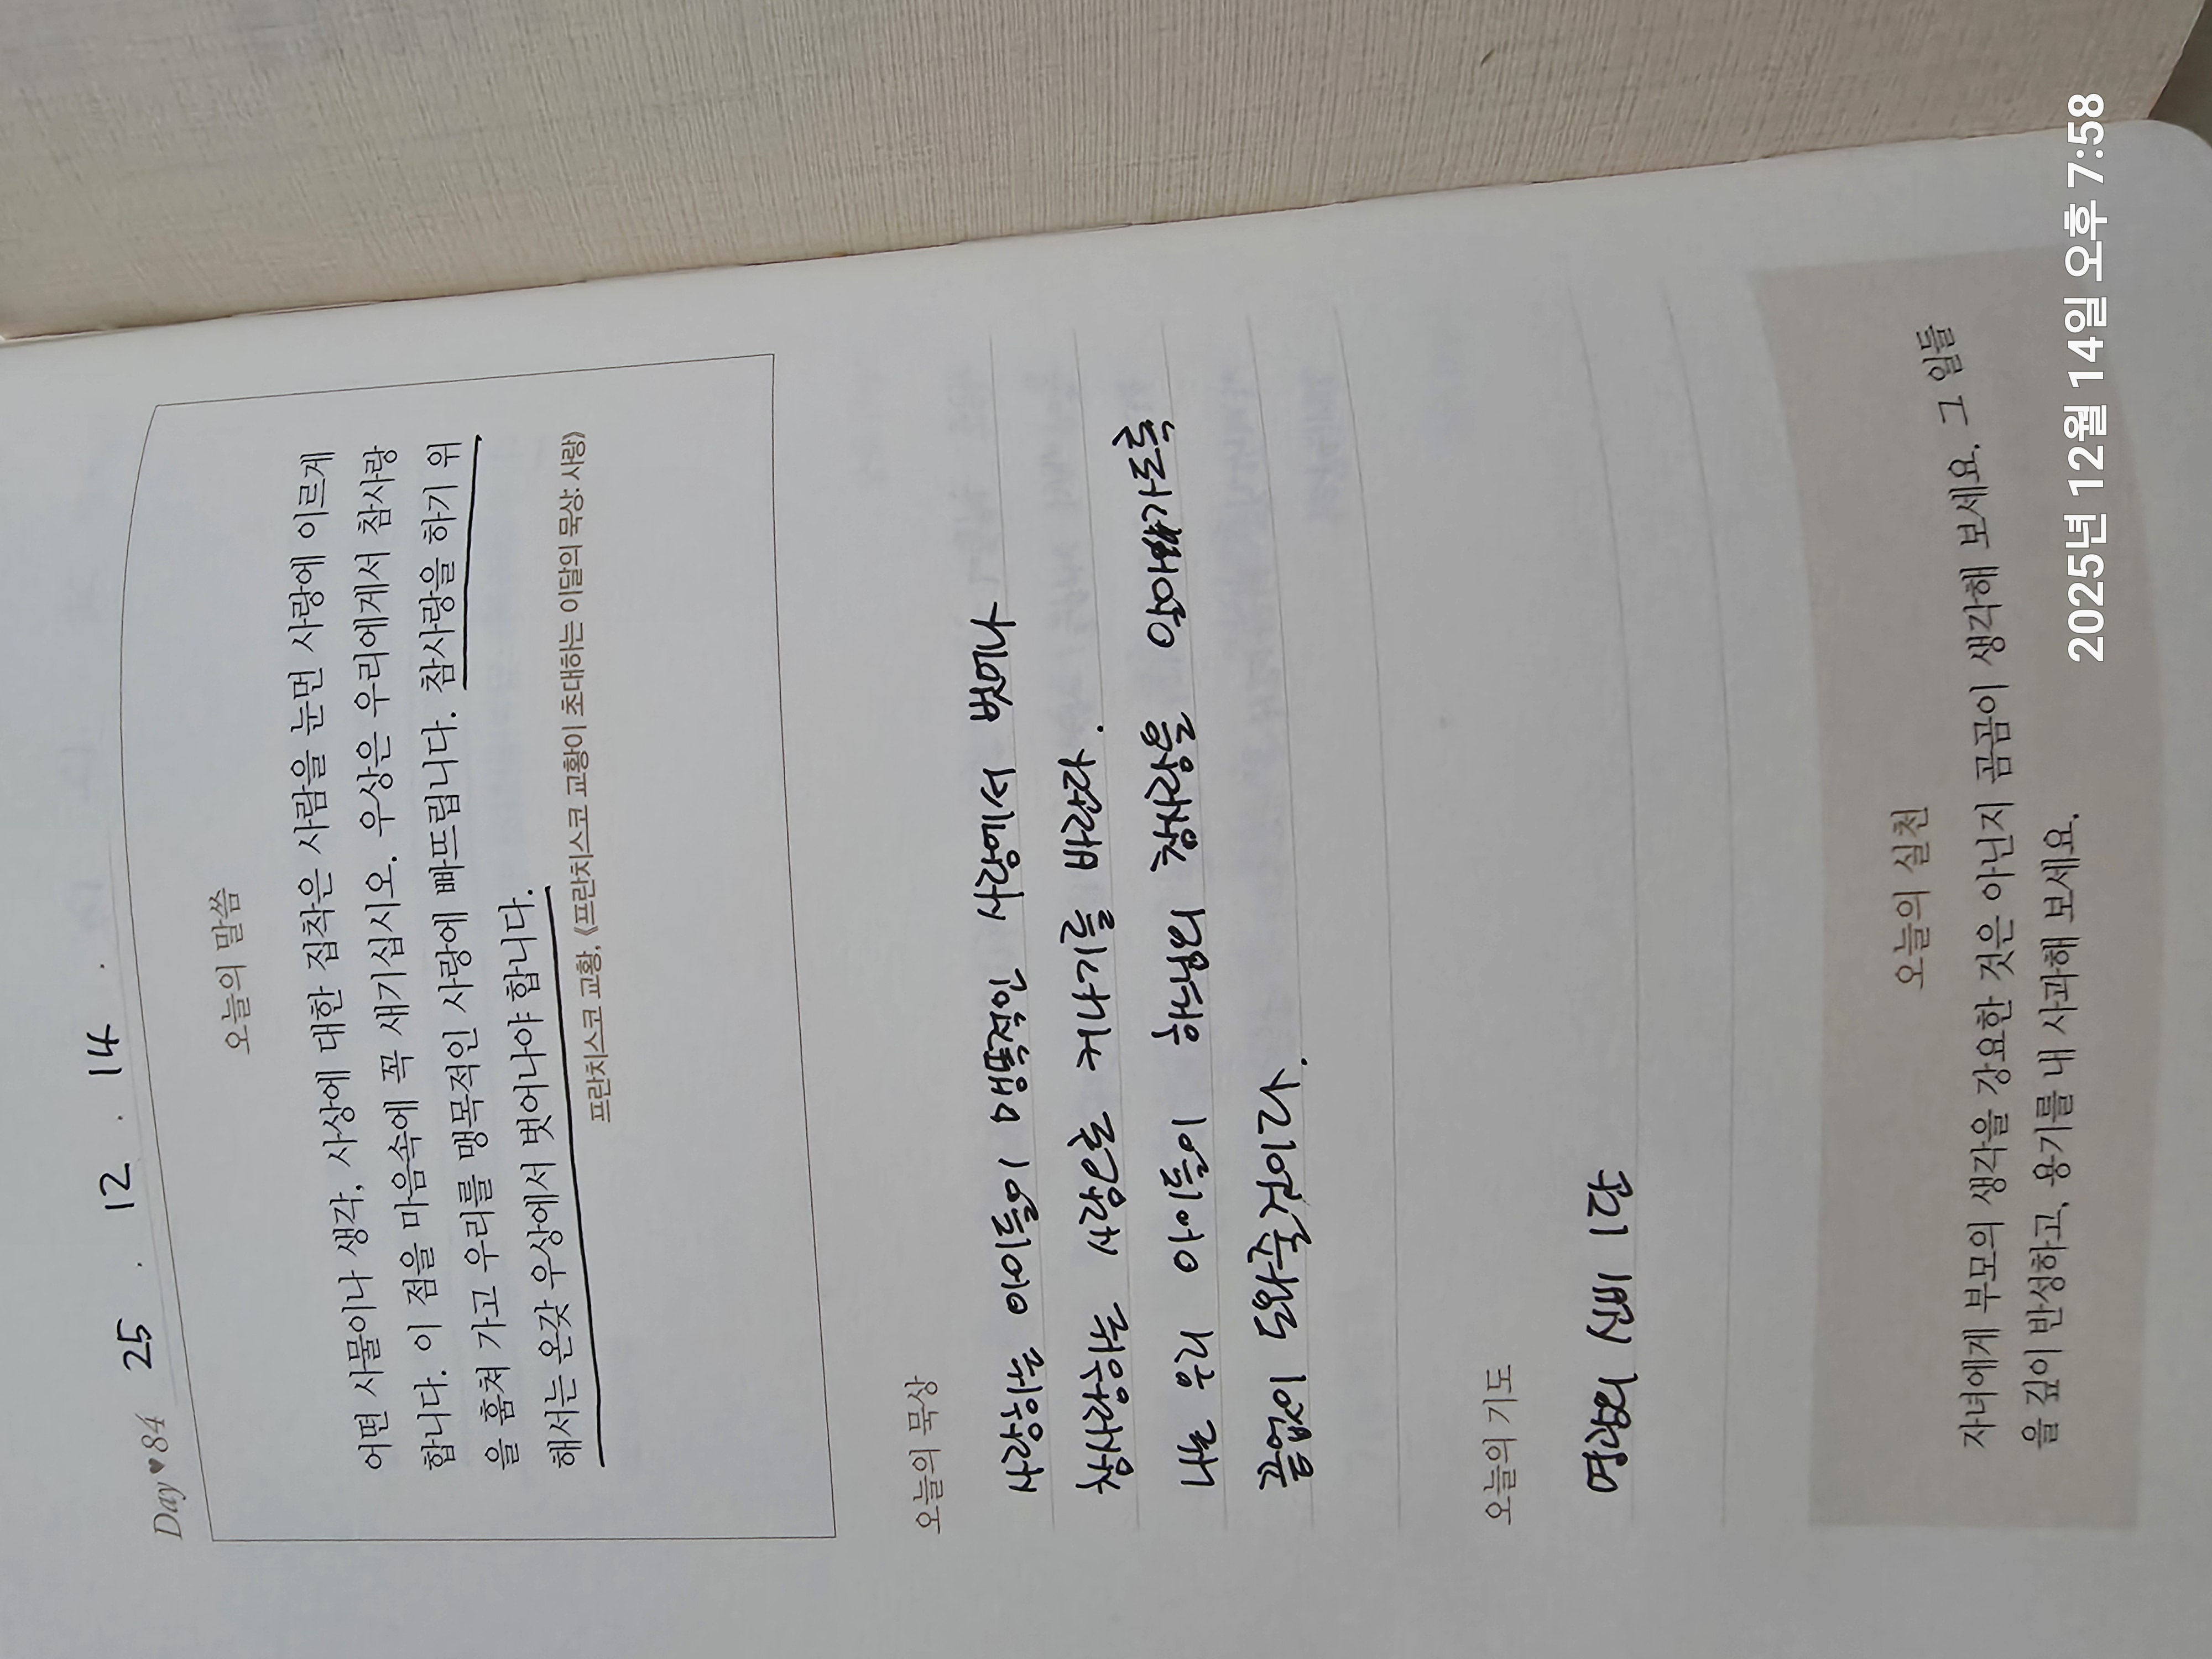 Day♥84 25 . 12 . 14 .
오늘의 말씀
어떤 사물이나 생각, 사상에 대한 집착은 사람을 눈먼 사랑에 이르게
합니다. 이 점을 마음속에 꼭 새기십시오. 우상은 우리에게서 참사랑
을 훔쳐 가고 우리를 맹목적인 사랑에 빠뜨립니다. 참사랑을 하기 위
해서는 온갖 우상에서 벗어나야 합니다.
프란치스코 교황, 《프란치스코 교황이 초대하는 이달의 묵상: 사랑》
오늘의 묵상
사랑하는 아이들이 맹목적인 사랑에서 벗어나
참사랑하는 사람으로 커나가기를 바란다.
나는 우리 아이들이 하느님의 참사랑을 알아가도록
끝없이 도와줄것이다.
오늘의 기도
영광의 신비 1단
오늘의 실천
자녀에게 부모의 생각을 강요한 것은 아닌지 곰곰이 생각해 보세요. 그 일들
을 깊이 반성하고, 용기를 내 사과해 보세요.
2025년 12월 14일 오후 7:58